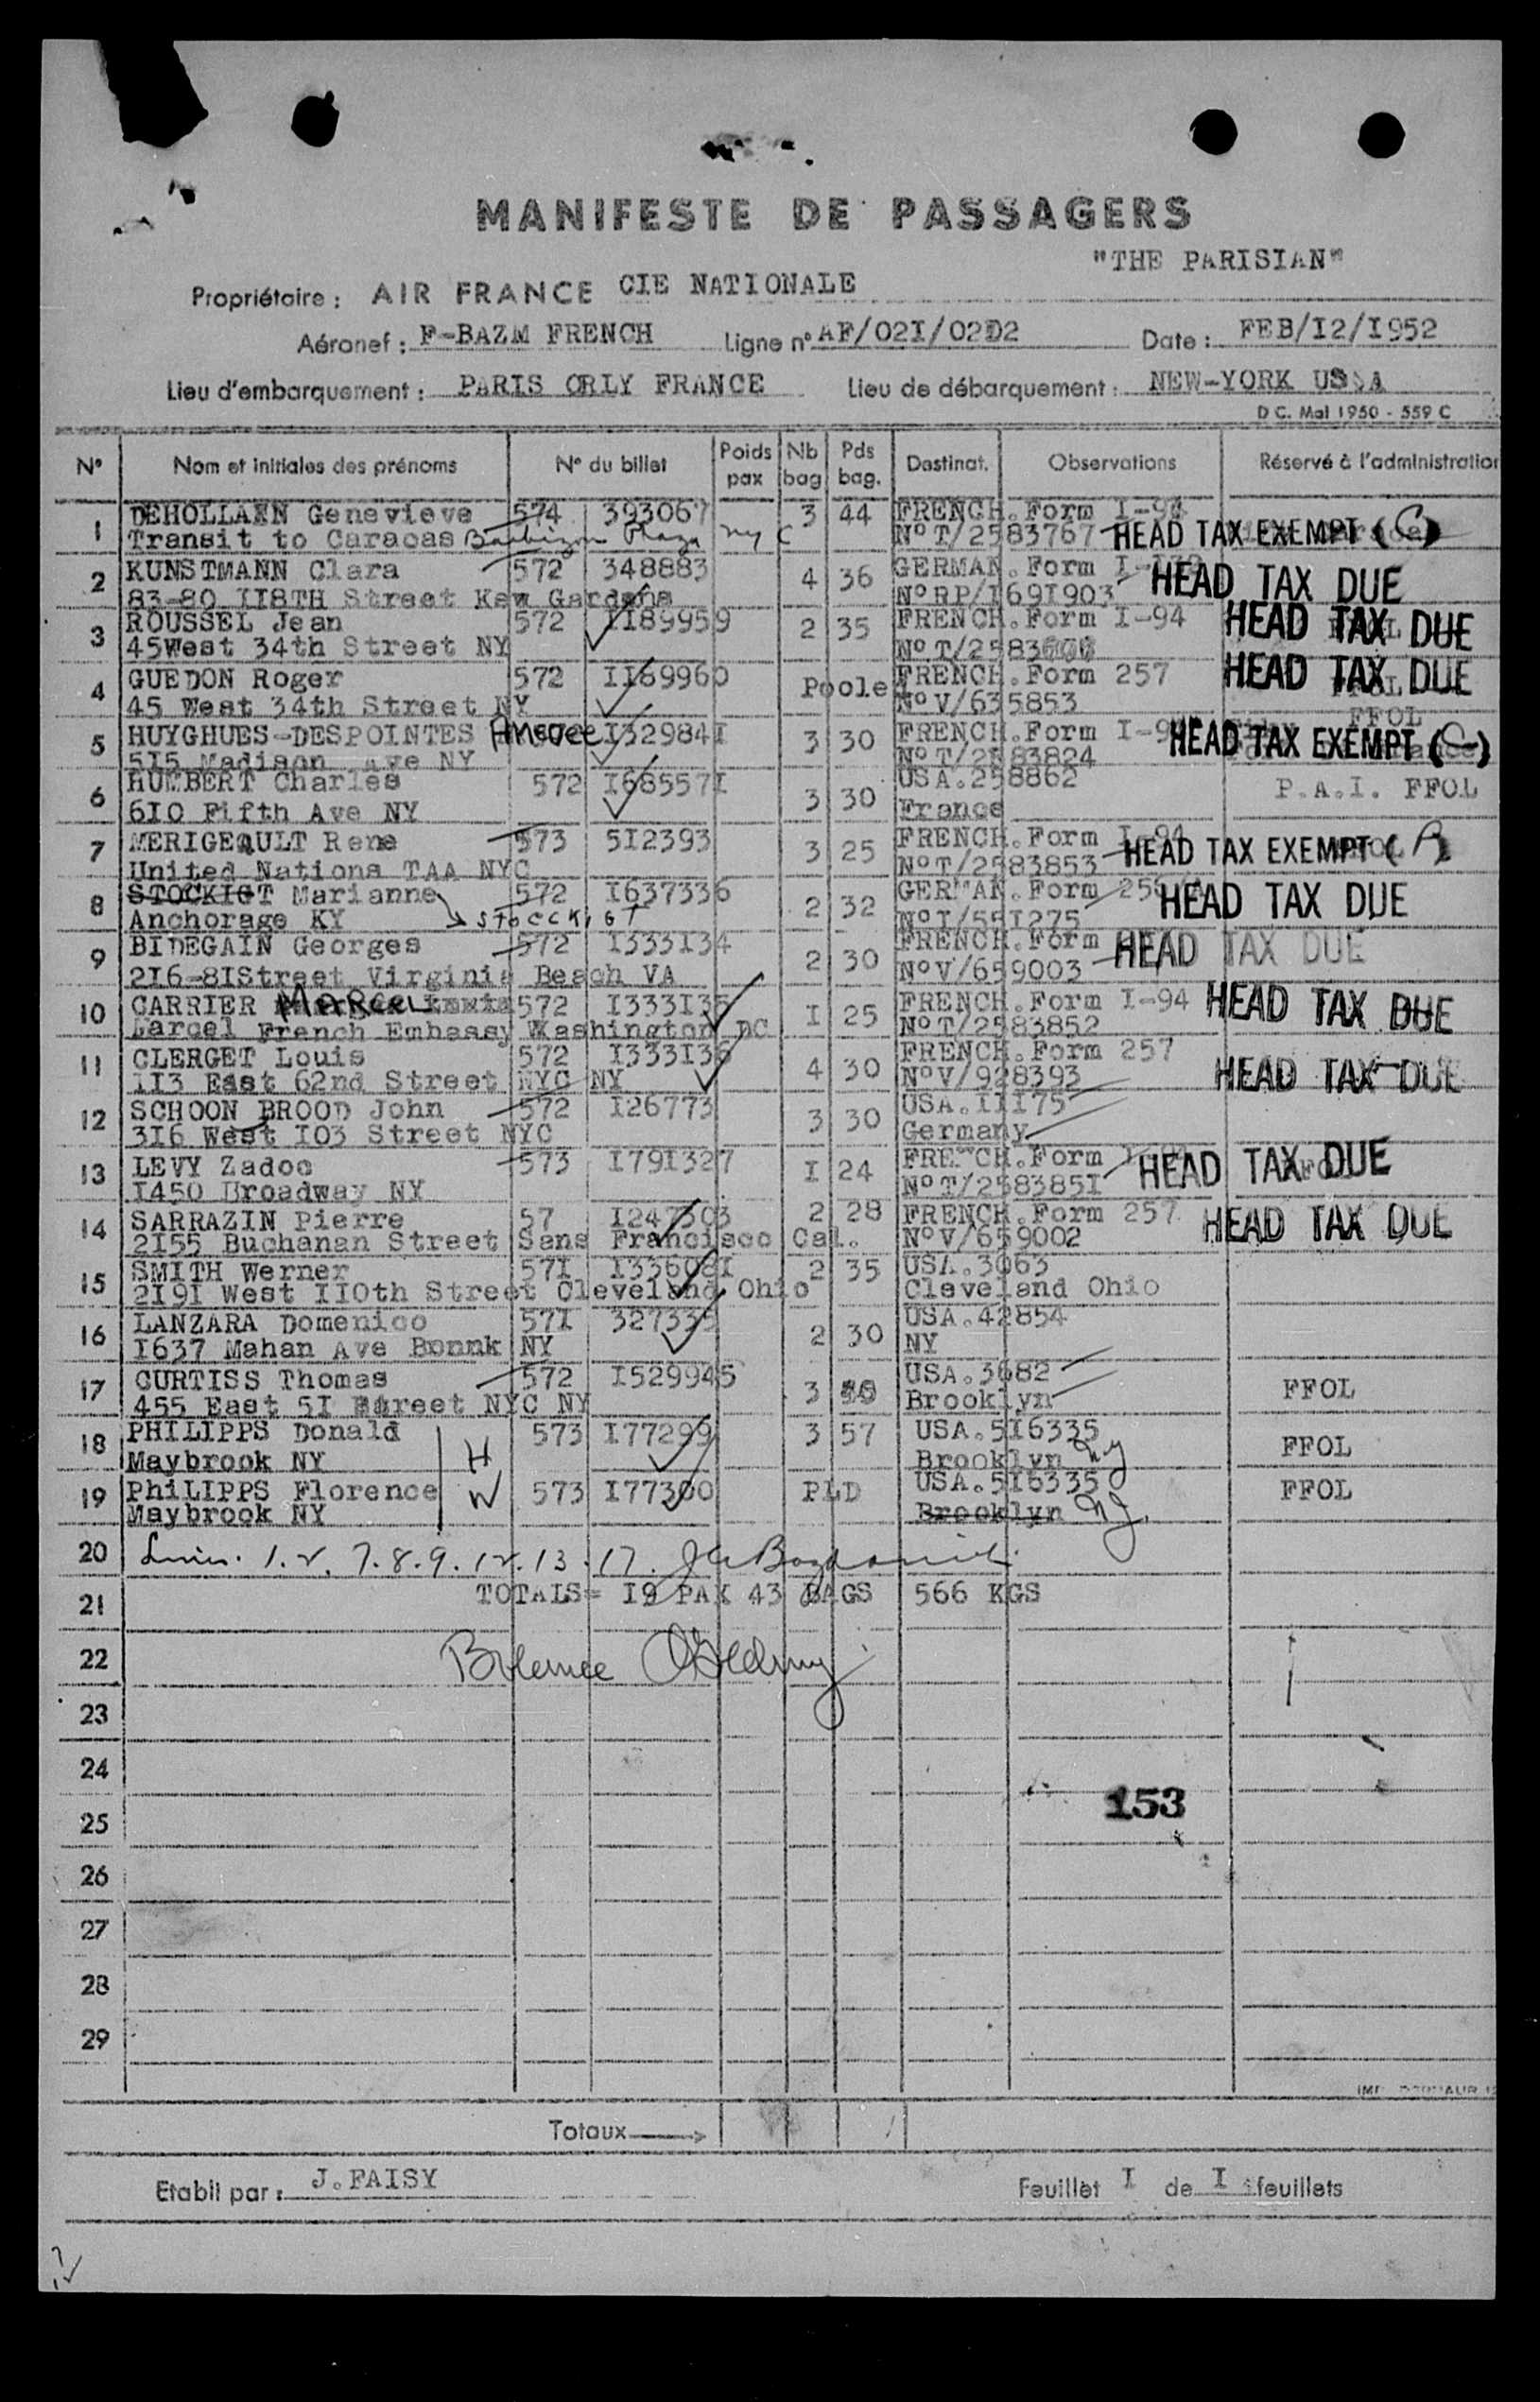 MANIFESTE DE PASSAGERS
"THE PARISIAN"
Propriétaire : AIR FRANCE CIE NATIONALE
Aéronef : F-BAZM FRENCH Ligne n° AF/02I/02D2 Date : FEB/I2/I952
Lieu d'embarquement : PARIS ORLY FRANCE Lieu de débarquement : NEW-YORK USA
D C. Mal 1950 - 559 C
N° Nom et initiales des prénoms N° du billet Poids pax Nb bag Pds bag. Destinat. Observations Réservé à l'administration
1 DEHOLLAIN Genevieve 574 393067 3 44 FRENCH. Form I-94
Transit to Caracas Barbizon Plaza NY C N° T/2583767 HEAD TAX EXEMPT (C)
2 KUNSTMANN Clara 572 348883 4 36 GERMAN. Form
83-80 II8TH Street Kew Gardens N° RP/I691903 HEAD TAX DUE
3 ROUSSEL Jean 572 II89959 2 35 FRENCH. Form I-94 HEAD TAX DUE
45West 34th Street NY N° T/2583
4 GUEDON Roger 572 II69960 Pooled FRENCH. Form 257 HEAD TAX DUE
45 West 34th Street NY N° V/635853 FFOL
5 HUYGHUES-DESPOINTES Amedee I32984I 3 30 FRENCH. Form I-94 FFOL
515 Madison Ave NY N° T/2583824 HEAD TAX EXEMPT (C)
6 HUMBERT Charles 572 I68557I 3 30 USA. 258862 P.A.I. FFOL
6I0 Fifth Ave NY France
7 MERIGEAULT Rene 573 5I2393 3 25 FRENCH. Form I-94
United Nations TAA NYC N° T/2583853 HEAD TAX EXEMPT (A)
8 STOCKIGT Marianne 572 I637336 2 32 GERMAN. Form HEAD TAX DUE
Anchorage KY STOCCKIGT N° I/55I275
9 BIDEGAIN Georges 572 I333I34 2 30 FRENCH. Form HEAD TAX DUE
2I6-8IStreet Virginia Beach VA N° V/659003
10 CARRIER MARCEL 572 I333I35 I 25 FRENCH. Form I-94 HEAD TAX DUE
Marcel French Embassy Washington DC N° T/2583852
11 CLERGET Louis 572 I333I36 4 30 FRENCH. Form 257
II3 East 62nd Street NYC NY N° V/928393 HEAD TAX DUE
12 SCHOON BROOD John 572 I26773 3 30 USA. III75
3I6 West I03 Street NYC Germany
13 LEVY Zadoc 573 I79I327 I 24 FRENCH. Form HEAD TAX DUE
I450 Broadway NY N° T/258385I
14 SARRAZIN Pierre 57 I247303 2 28 FRENCH. Form 257 HEAD TAX DUE
2I55 Buchanan Street Sans Francisco Cal. N° V/659002
15 SMITH Werner 57I I33608I 2 35 USA. 3063
2I9I West II0th Street Cleveland Ohio Cleveland Ohio
16 LANZARA Domenico 57I 327335 2 30 USA. 42854
I637 Mahan Ave NY NY
17 CURTISS Thomas 572 I529945 3 USA. 3682 FFOL
455 East 5I Street NYC NY Brooklyn
18 PHILIPPS Donald H 573 I77299 3 57 USA. 5I6335 FFOL
Maybrook NY Brooklyn NY
19 PhiLIPPS Florence W 573 I77300 PLD USA. 5I6335 FFOL
Maybrook NY Brooklyn NY.
20 1. 2. 7. 8. 9. 12. 13. 17.
21 TOTALS= I9 PAX 43 BAGS 566 KGS
22
23
24
153
25
26
27
28
29
Totaux
Etabli par : J. FAISY Feuillet I de I feuillets